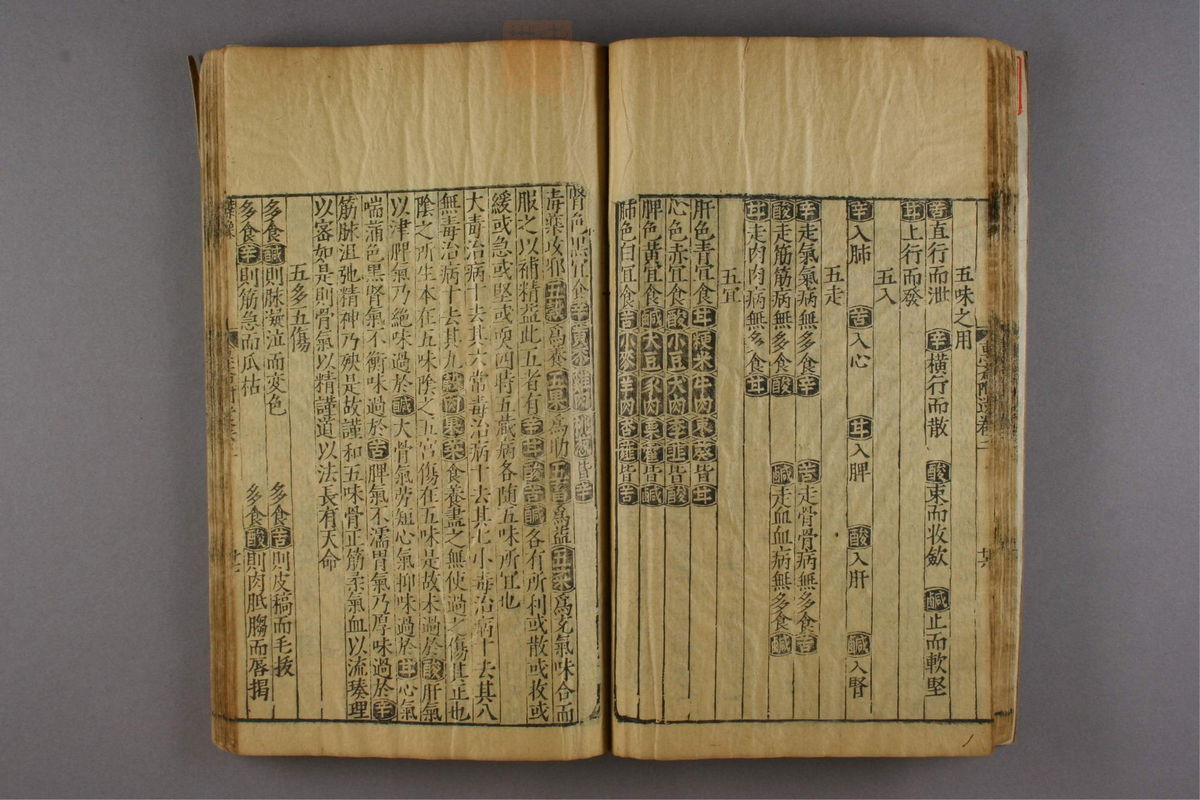 五味之用
苦直行而泄 辛横行而散 酸束而收歛 鹹止而軟堅
甘上行而發
五入
辛入肺 苦入心 甘入脾 酸入肝 鹹入腎
五走
辛走氣氣病無多食辛 苦走骨骨病無多食苦
酸走筋筋病無多食酸 鹹走血血病無多食鹹
甘走肉肉病無多食甘
五宜
肝色青宜食甘粳米牛肉棗葵皆甘
心色赤宜食酸小豆犬肉李韭皆酸
脾色黄宜食鹹大豆豕肉栗藿皆鹹
肺色白宜食苦小麥羊肉杏薤皆苦
腎色黑宜食辛黄黍雞肉桃葱皆辛
毒藥攻邪五穀為養五果為助五畜為益五菜為充氣味合而
服之以補精益此五者有辛甘酸苦鹹各有所利或散或收或
緩或急或堅或耎四時五藏病各随五味所宜也
大毒治病十去其六常毒治病十去其七小毒治病十去其八
無毒治病十去其九穀肉果菜食養盡之無使過之傷其正也
陰之所生本在五味陰之五宫傷在五味是故味過於酸肝氣
以津脾氣乃絶味過於鹹大骨氣勞短心氣抑味過於甘心氣
喘滿色黑腎氣不衡味過於苦脾氣不濡胃氣乃厚味過於辛
筋脉沮弛精神乃殃是故謹和五味骨正筋柔氣血以流腠理
以密如是則骨氣以精謹道以法長有天命
五多五傷
多食鹹則脉凝泣而变色 多食苦則皮稿而毛拔
多食辛則筋急而爪枯 多食酸則肉胝䐢而唇揭